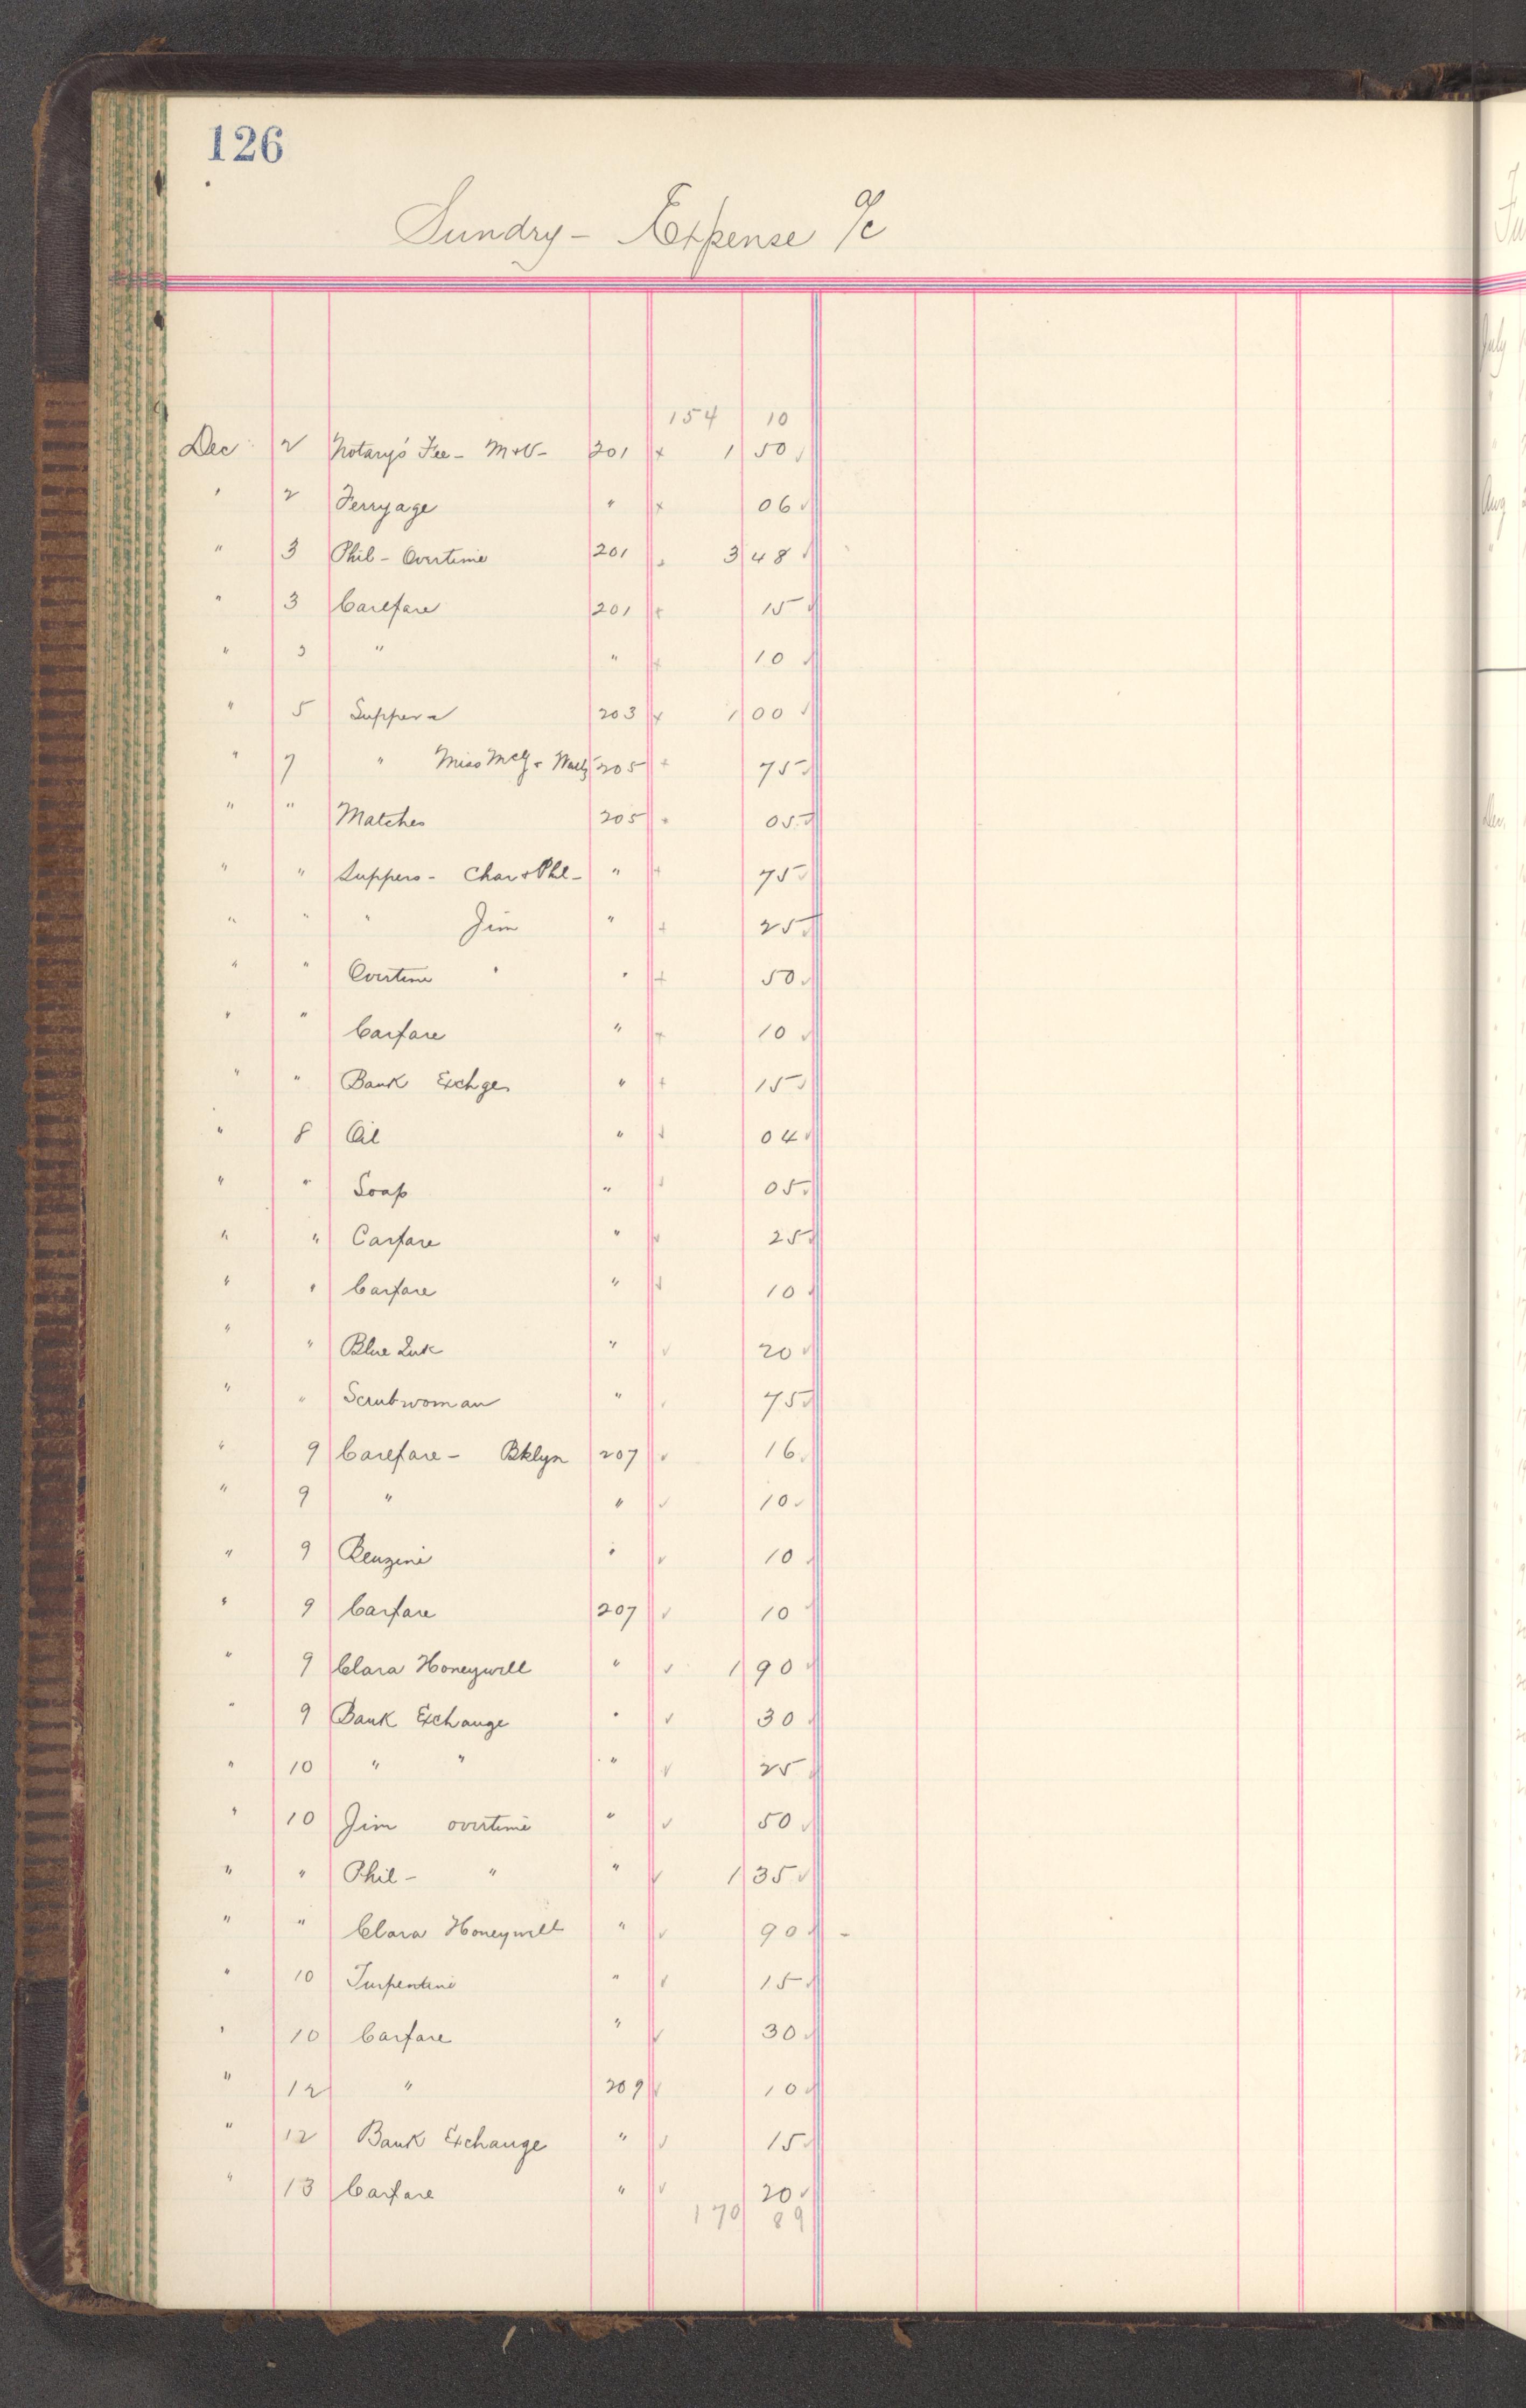 126
Sundry - Expense a/c
154 10
Dec 2 Notary's Fee - M+V - 201 1 50
" 2 Ferryage " 06
" 3 Phil - Overtime 201 3 48
" 3 Carefare 201 15
" 3 " " 10
" 5 Suppers 203 1 00
" 7 " Miss McG & 205 75
" " Matches 205 05
" " Suppers - Chas + Phl - " 75
" " " Jim " 25
" " Overtime " " 50
" " Carfare " 10
" " Bank Exchges " 15
" 8 Oil " 04
" " Soap " 05
" " Carfare " 25
" " Carfare " 10
" " Blue Ink " 20
" " Scrubwoman " 75
" 9 Carefare - Bklyn 207 16
" 9 " " 10
" 9 Benzine " 10
" 9 Carfare 207 10
" 9 Clara Honeywell " 1 90
" 9 Bank Exchange " 30
" 10 " " " 25
" 10 Jim overtime " 50
" " Phil - " " 1 35
" " Clara Honeywell " 90
" 10 Turpentine " 15
" 10 Carfare " 30
" 12 " 209 10
" 12 Bank Exchange " 15
" 13 Carfare " 20
170 89
July
Aug
Dec.